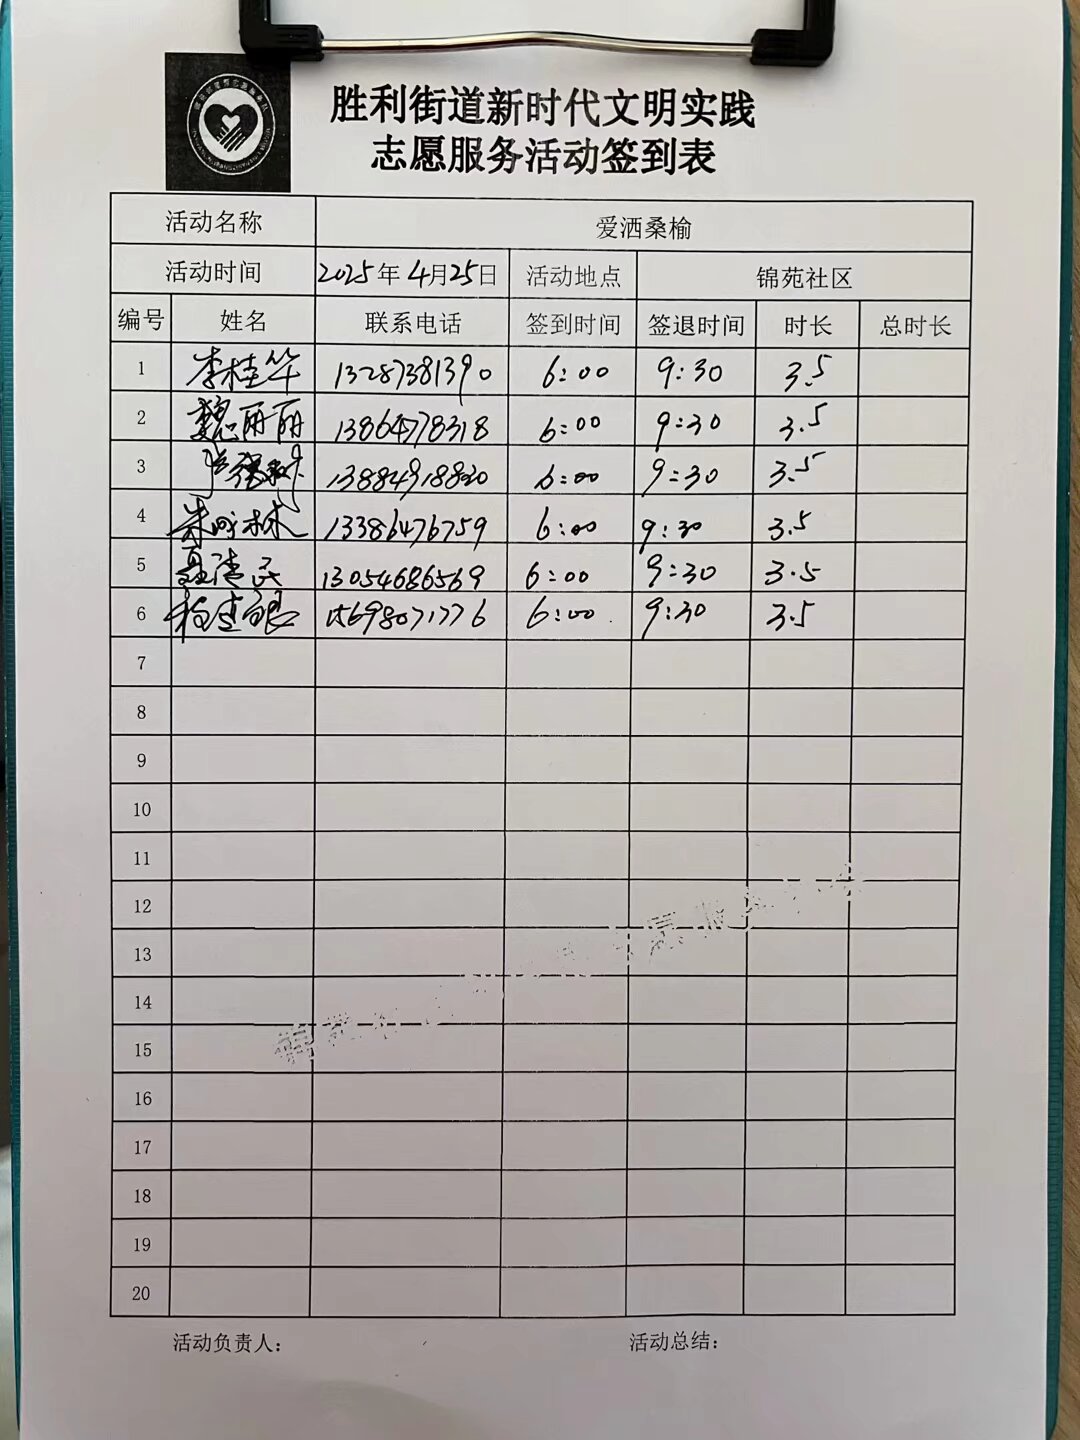 胜利街道新时代文明实践
志愿服务活动签到表
活动名称 爱洒桑榆
活动时间 2025年4月25日 活动地点 锦苑社区
编号 姓名 联系电话 签到时间 签退时间 时长 总时长
1 李桂华 13287381390 6:00 9:30 3.5
2 魏丽丽 13864778318 6:00 9:30 3.5
3 13884918820 6:00 9:30 3.5
4 朱成林 13386476759 6:00 9:30 3.5
5 聂清兵 13054686569 6:00 9:30 3.5
6 15698071776 6:00 9:30 3.5
7
8
9
10
11
12
13
14
15
16
17
18
19
20
活动负责人: 活动总结: